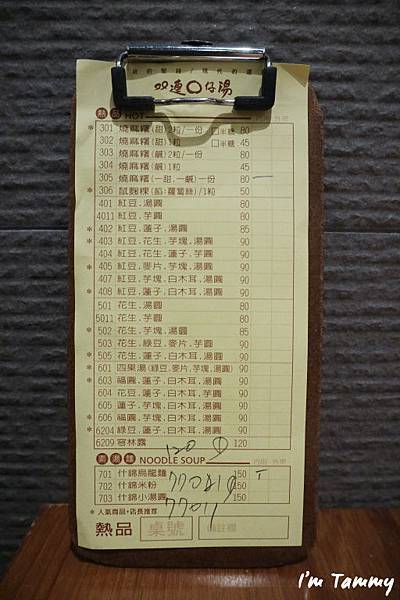 双連〇仔湯
熱品 HOT 內用 外帶
* 301 燒麻糬(甜)2粒/一份 □半糖 80
302 燒麻糬(甜)1粒 □半糖 45
303 燒麻糬(鹹)2粒/一份 80
304 燒麻糬(鹹)1粒 45
305 燒麻糬(一甜.一鹹)一份 80
* 306 鼠麴粿(餡:蘿蔔絲)/1粒 50
401 紅豆.湯圓 80
4011 紅豆.芋圓 80
* 402 紅豆.蓮子.湯圓 85
* 403 紅豆.花生.芋塊.湯圓 90
404 紅豆.花生.蓮子.芋圓 90
* 405 紅豆.麥片.芋塊.芋圓 90
407 紅豆.芋塊.白木耳.湯圓 90
* 408 紅豆.蓮子.白木耳.湯圓 90
501 花生.湯圓 80
5011 花生.芋圓 80
* 502 花生.芋塊.湯圓 85
503 花生.綠豆.麥片.芋圓 90
* 505 花生.蓮子.白木耳.湯圓 90
* 601 四果湯(綠豆.麥片.芋塊.湯圓) 90
* 603 福圓.蓮子.白木耳.湯圓 90
604 花豆.蓮子.白木耳.芋圓 90
605 蓮子.芋塊.白木耳.湯圓 90
* 606 福圓.芋塊.白木耳.芋圓 90
* 6204 綠豆.蓮子.白木耳.湯圓 90
6209 窖林露 120
120
鹹湯類 NOODLE SOUP 內用 外帶
701 什錦烏龍麵 150
702 什錦米粉 150
703 什錦小湯圓 150
* 人氣商品+店長推荐
熱品 桌號 備註欄
I'm Tammy